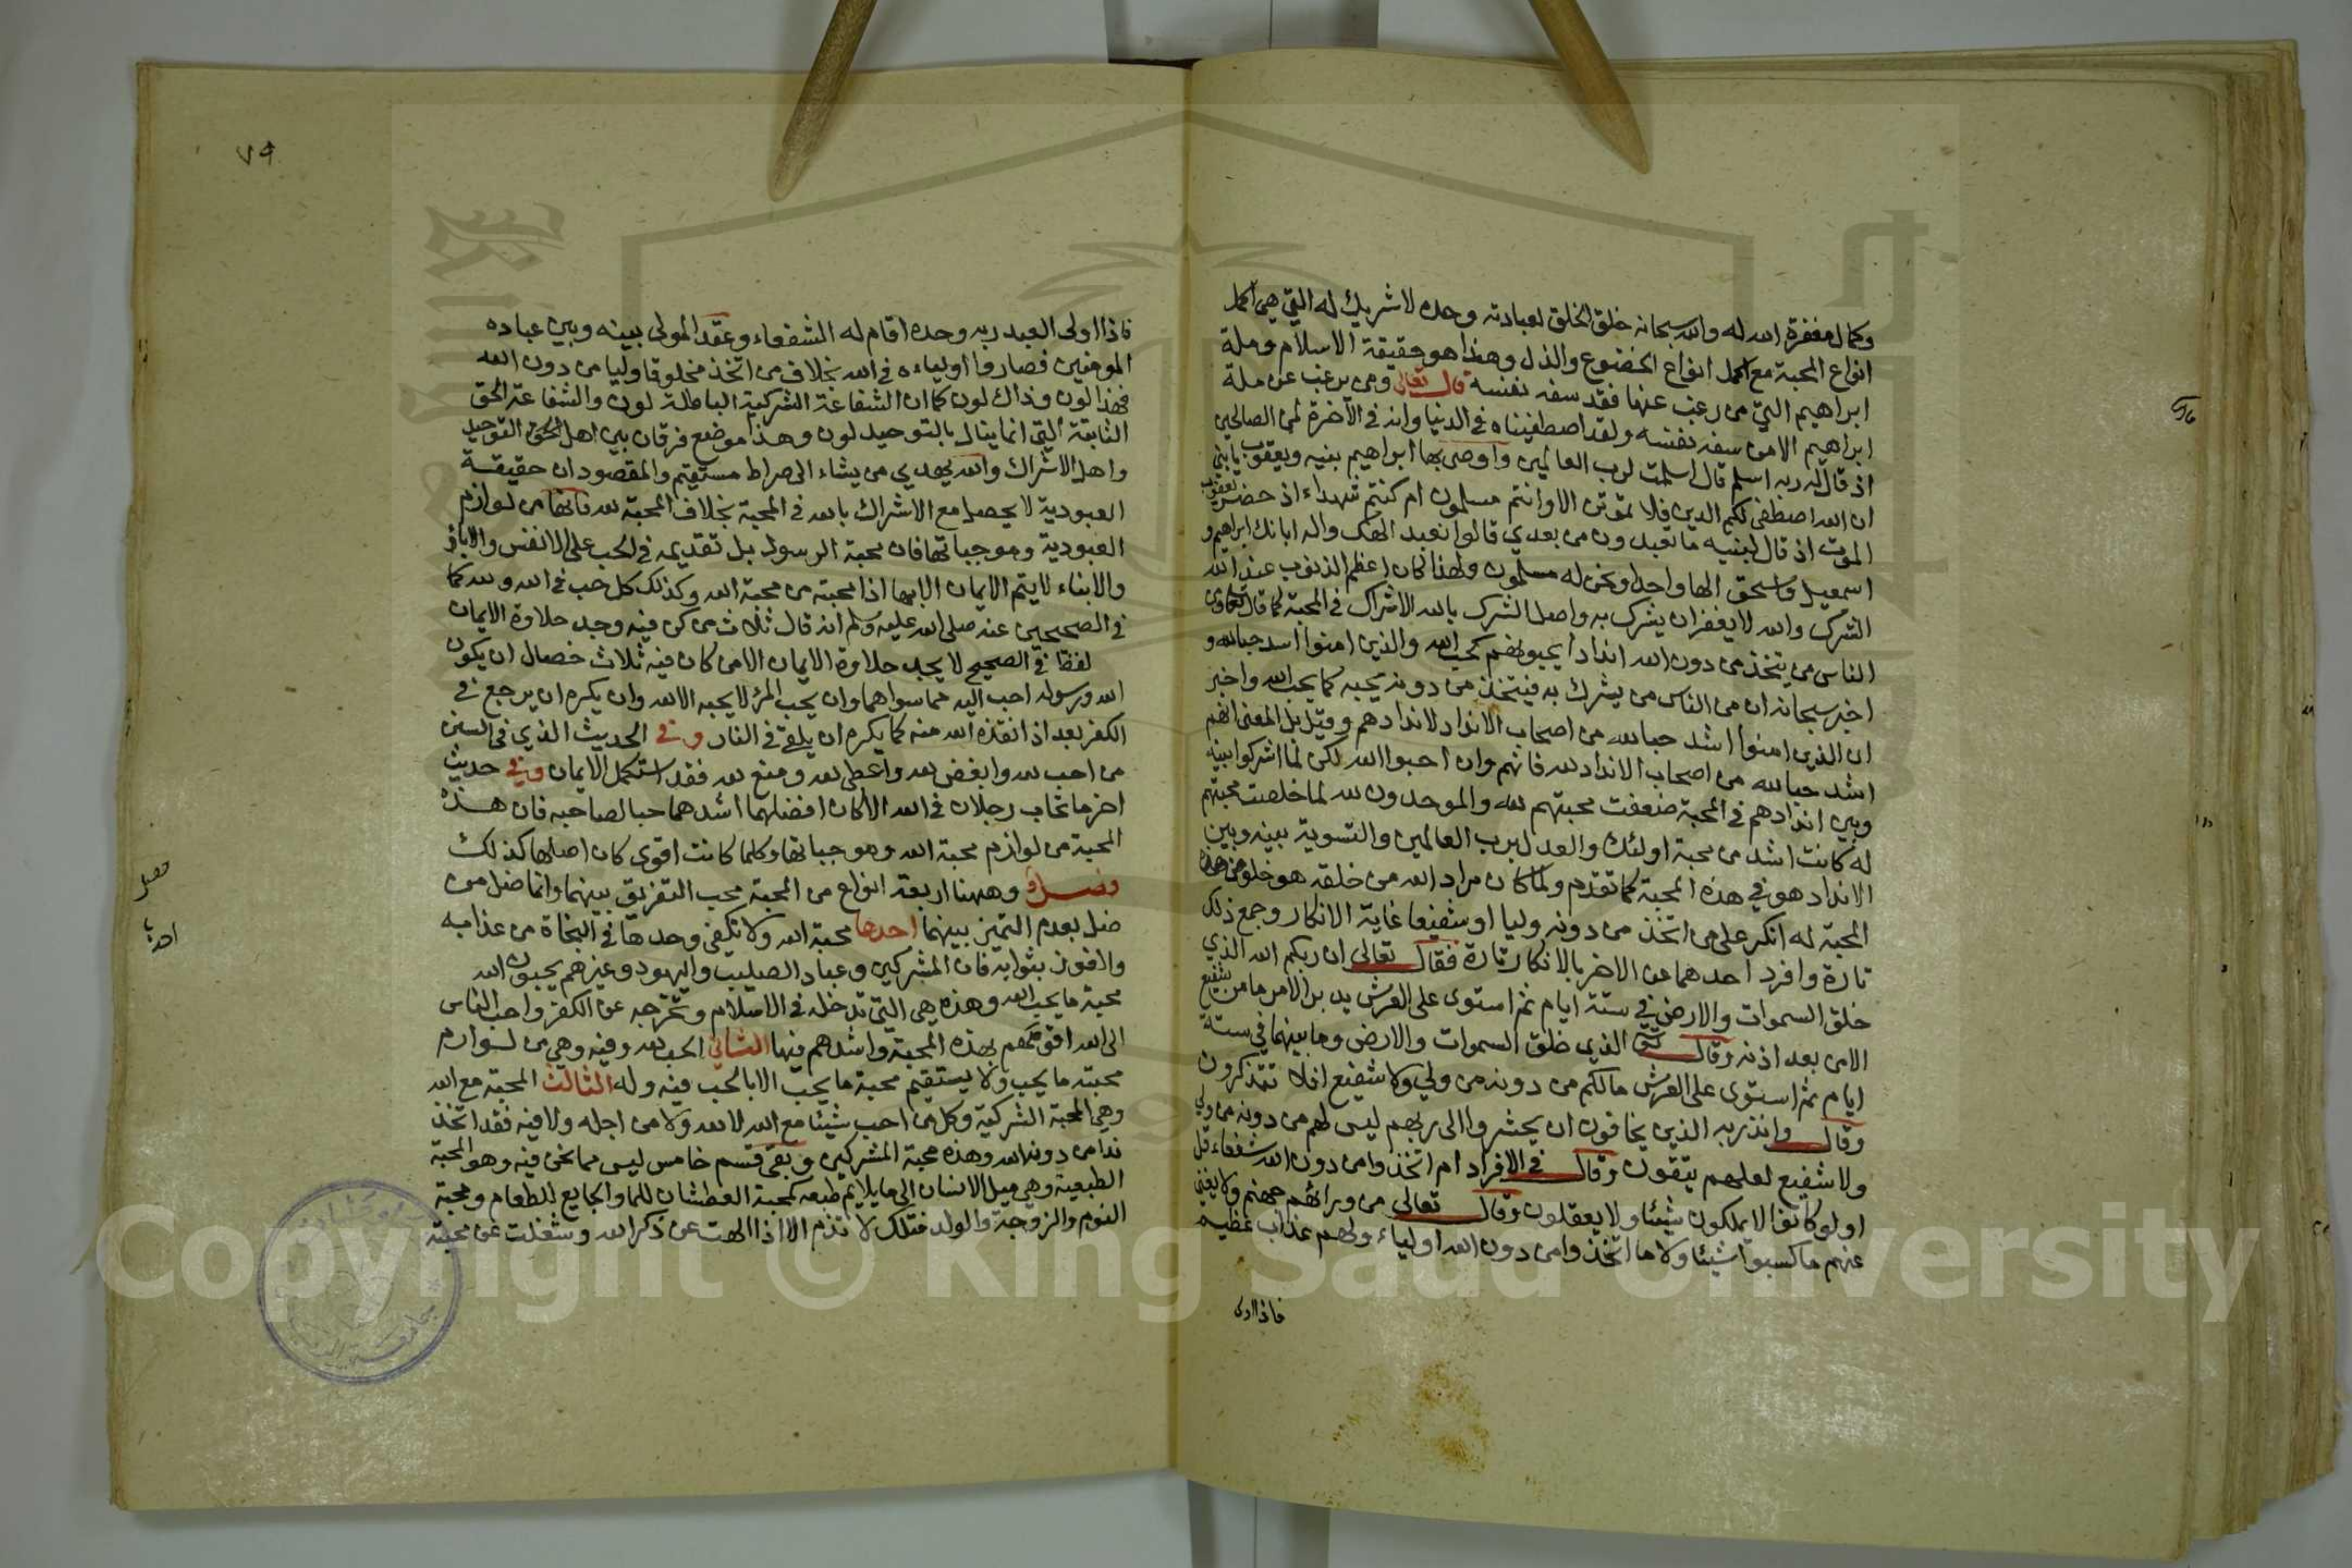 وكمال مغفرة الله له والله سبحانه خلق الخلق لعبادته وحده لا شريك له التي هي اكمل
انواع المحبة مع اكمل انواع الخضوع والذل وهذا هو حقيقة الاسلام وملة
ابراهيم التي من رغب عنها فقد سفه نفسه قال تعالى ومن يرغب عن ملة
ابراهيم الا من سفه نفسه ولقد اصطفيناه في الدنيا وانه في الآخرة لمن الصالحين
اذ قال له ربه اسلم قال اسلمت لرب العالمين واوصى بها ابراهيم بنيه ويعقوب يابني
ان الله اصطفى لكم الدين فلا تموتن الا وانتم مسلمون ام كنتم شهداء اذ حضر يعقوب
الموت اذ قال لبنيه ما تعبدون من بعدي قالوا نعبد الهك واله ابائك ابراهيم و
اسمعيل واسحق الها واحدا ونحن له مسلمون ولهذا كان اعظم الذنوب عند الله
الشرك والله لا يغفر ان يشرك به واصل الشرك بالله الاشراك في المحبة كما قال تعالى ومن
الناس من يتخذ من دون الله اندادا يحبونهم كحب الله والذين امنوا اشد حبا لله و
اخبر سبحانه ان من الناس من يشرك به فيتخذ من دونه يحبه كما يحب الله واخبر
ان الذين امنوا اشد حبا لله من اصحاب الانداد لاندادهم وقيل بل المعنى انهم
اشد حبا لله من اصحاب الانداد لله فانهم وان احبوا الله لكن لما اشركوا بينه
وبين اندادهم في المحبة ضعفت محبتهم لله والموحدون لله لما خلصت محبتهم
له كانت اشد من محبة اولئك والعدل برب العالمين والتسوية بينه وبين
الانداد هو في هذه المحبة كما تقدم ولما كان مراد الله من خلقه هو خلوص هذه
المحبة له انكر على من اتخذ من دونه وليا او شفيعا غاية الانكار وجمع ذلك
تارة وافرد احدهما عن الاخر بالانكار تارة فقال تعالى ان ربكم الله الذي
خلق السموات والارض في ستة ايام ثم استوى على العرش يدبر الامر ما من شفيع
الا من بعد اذنه وقال تعالى الذي خلق السموات والارض وما بينهما في ستة
ايام ثم استوى على العرش مالكم من دونه من ولي ولا شفيع افلا تتذكرون
وقال وانذر به الذين يخافون ان يحشروا الى ربهم ليس لهم من دونه من ولي
ولا شفيع لعلهم يتقون وقال في الافراد ام اتخذوا من دون الله شفعاء قل
اولو كانوا لا يملكون شيئا ولا يعقلون وقال تعالى من ورائهم جهنم ولا يغني
عنهم ما كسبوا شيئا ولا ما اتخذوا من دون الله اولياء ولهم عذاب عظيم
فاذا اولى
٧٩
فاذا اولى العبد ربه وحده اقام له الشفعاء وعقد المولى بينه وبين عباده
المومنين فصاروا اولياءه في الله بخلاف من اتخذ مخلوقا وليا من دون الله
فهذا لون وذاك لون كما ان الشفاعة الشركية الباطلة لون والشفاعة الحق
الثابتة التي انما ينال بالتوحيد لون وهذا موضع فرقان بين اهل الحق التوحيد
واهل الاشراك والله يهدي من يشاء الى صراط مستقيم والمقصود ان حقيقة
العبودية لا يحصل مع الاشراك بالله في المحبة بخلاف المحبة لله فانها من لوازم
العبودية وموجباتها فان محبة الرسول بل تقديمه في الحب على الانفس والاباء
والابناء لا يتم الايمان الا بها اذا محبته من محبة الله وكذلك كل حب في الله ولله كما
في الصحيحين عنه صلى الله عليه وسلم انه قال ثلاث من كن فيه وجد حلاوة الايمان
لفظ في الصحيح لا يجد حلاوة الايمان الا من كان فيه ثلاث خصال ان يكون
الله ورسوله احب اليه مما سواهما وان يحب المرء لا يحبه الا لله وان يكره ان يرجع في
الكفر بعد اذ انقذه الله منه كما يكره ان يلقى في النار وفي الحديث الذي في السنن
من احب لله وابغض لله واعطى لله ومنع لله فقد استكمل الايمان وفي حديث
اخر ما تحاب رجلان في الله الا كان افضلهما اشدهما حبا لصاحبه فان هذه
المحبة من لوازم محبة الله وموجباتها وكلما كانت اقوى كان اصلها كذلك
فصل وههنا اربعة انواع من المحبة يجب التفريق بينهما وانما ضل من
ضل بعدم التميز بينهما احدها محبة الله ولا تكفي وحدها في النجاة من عذابه
والفوز بثوابه فان المشركين وعباد الصليب واليهود وغيرهم يحبون الله
محبة ما يحب الله وهذه هي التي تدخله في الاسلام وتخرجه عن الكفر واحب الناس
الى الله اقومهم بهذه المحبة واشدهم فيها الثاني الحب لله وفيه وهي من لوازم
محبته ما يحب ولا يستقيم محبة ما يحب الا بالحب فيه وله الثالث المحبة مع الله
وهي المحبة الشركية وكل من احب شيئا مع الله لا لله ولا من اجله ولا فيه فقد اتخذ
ندا من دون الله وهذه محبة المشركين وبقي قسم خامس ليس مما نحن فيه وهو المحبة
الطبيعية وهي ميل الانسان الى ما يلايم طبعه كمحبة العطشان للماء والجايع للطعام ومحبة
النوم والزوجة والولد فتلك لا تذم الا اذا الهت عن ذكر الله وشغلت عن محبته
فصل
Copyright © King Saud University